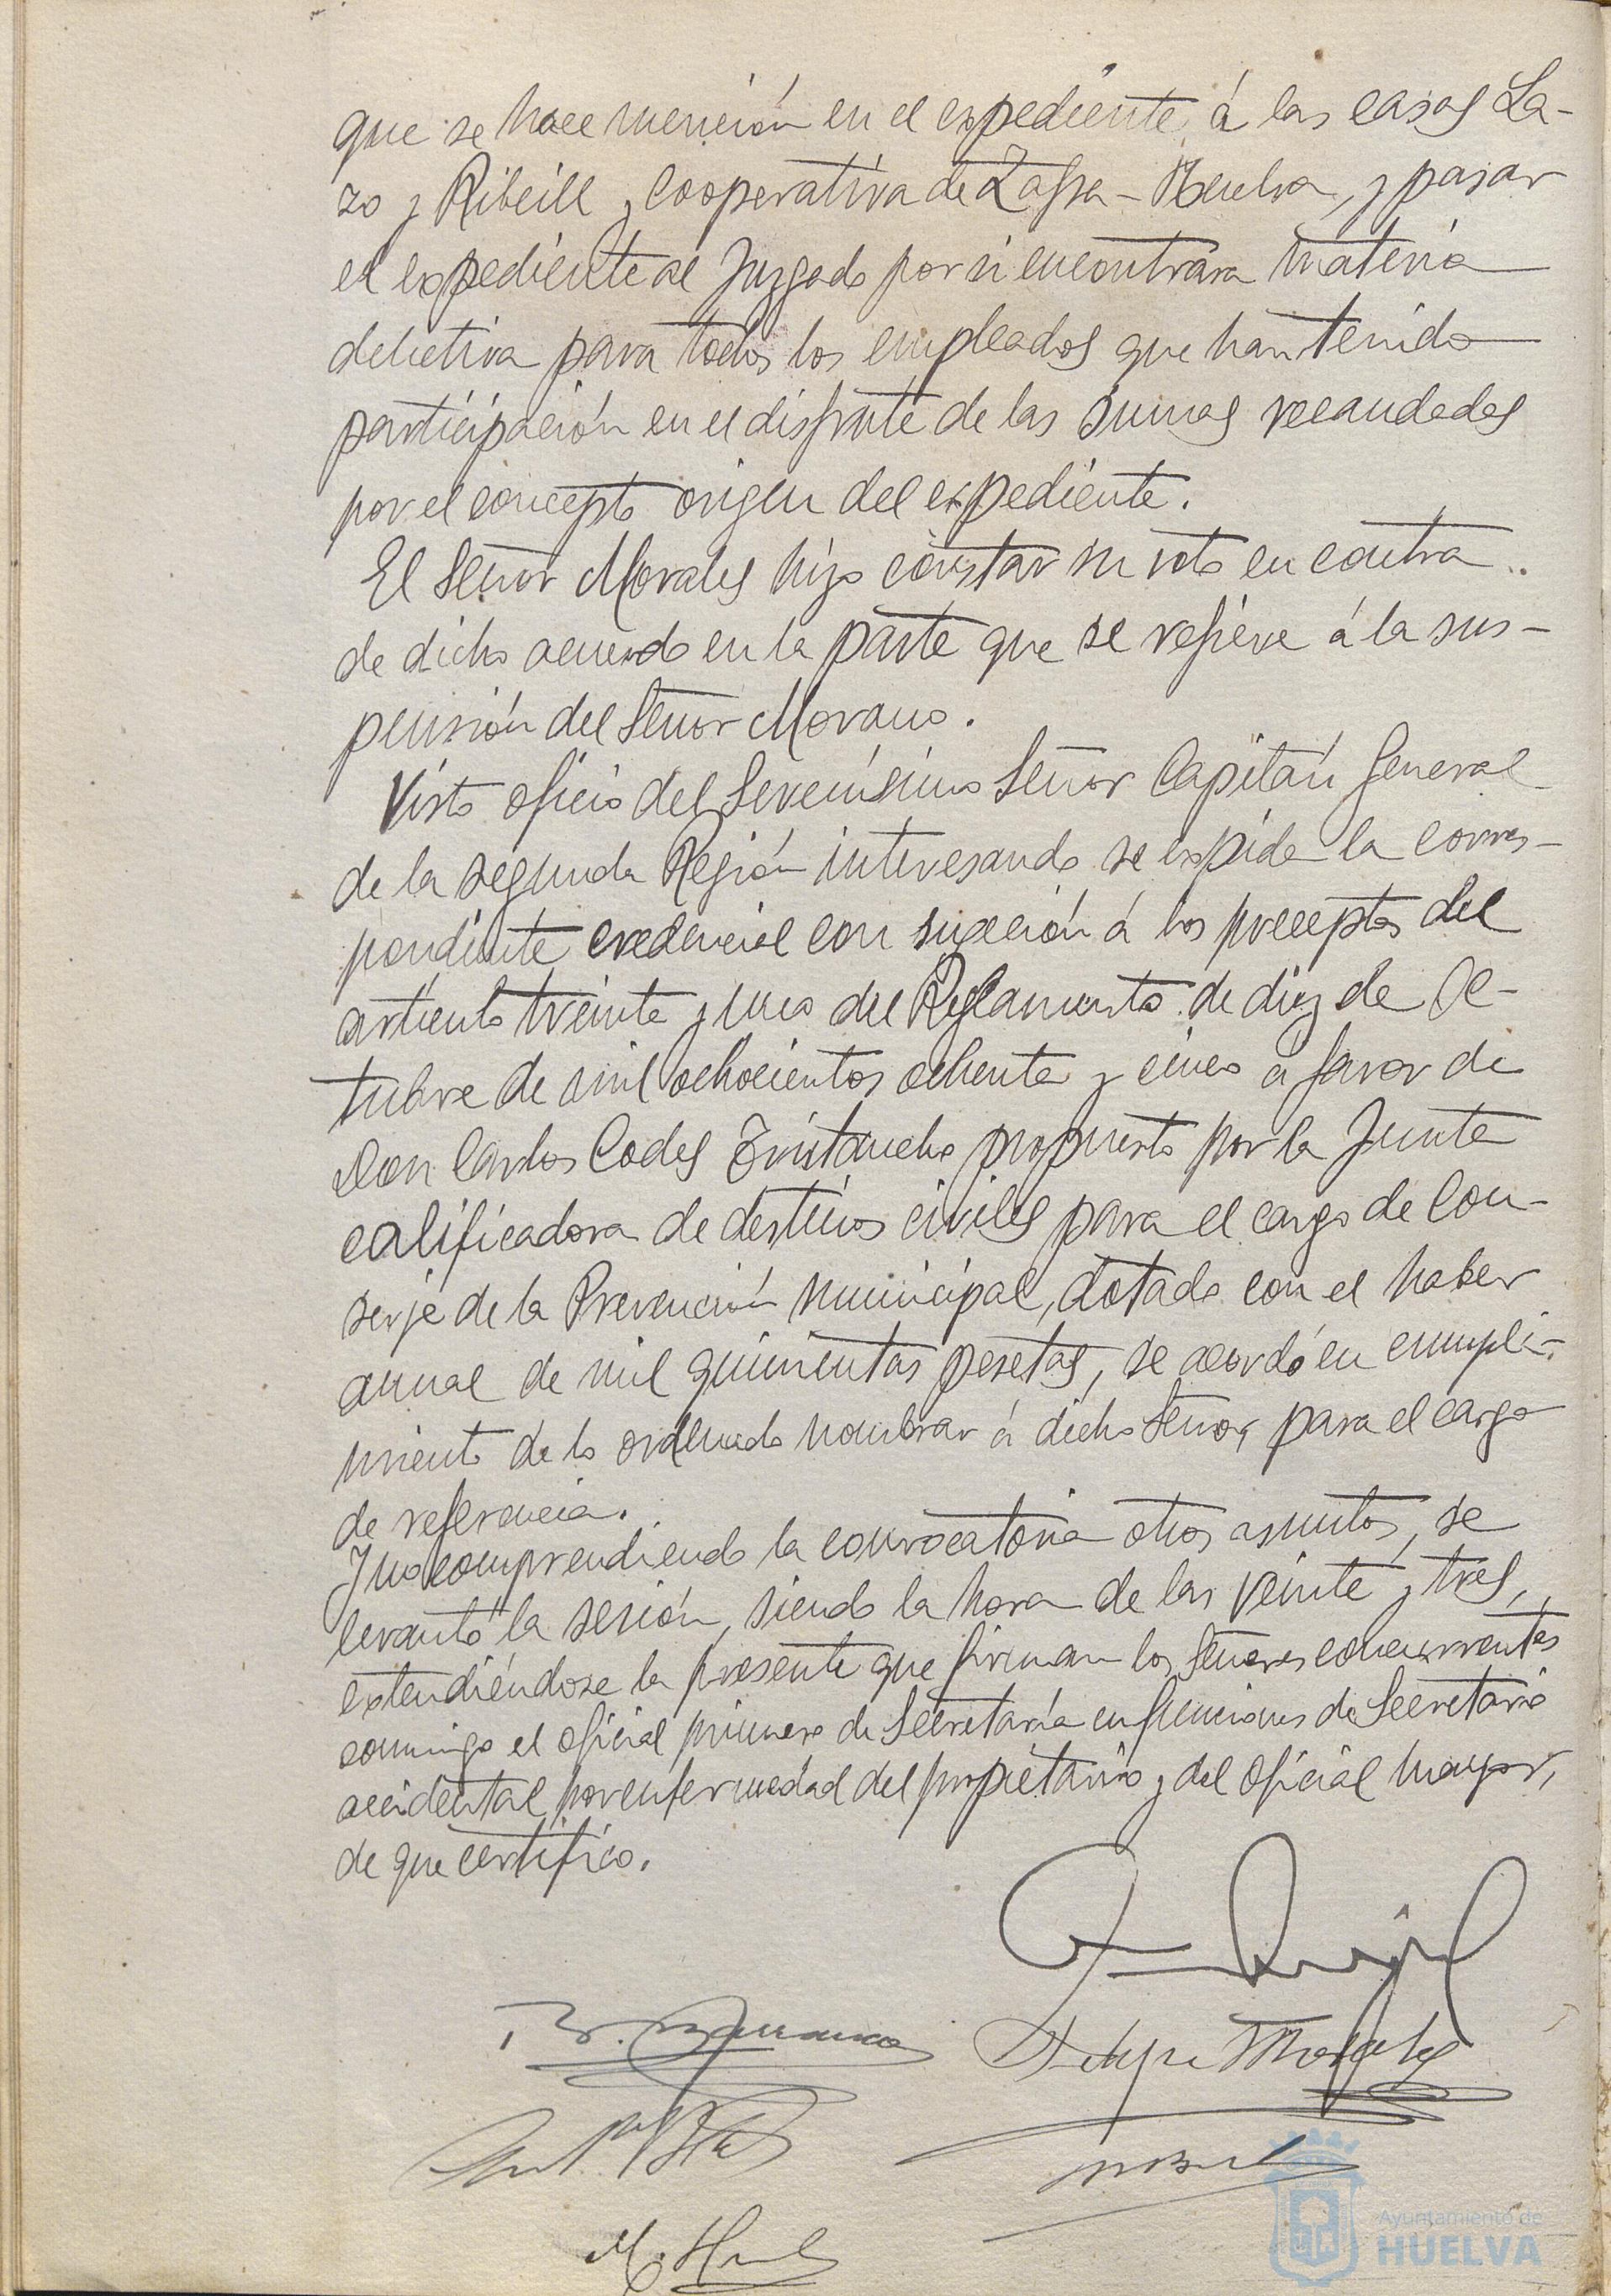 que se hace mención en el expediente, á las casas La-
zo y Ribeill y Cooperativa de Zafra-Huelva, y pasar
el expediente al Juzgado por si encontrara materia
delictiva para todos los empleados que han tenido
participación en el disfrute de las sumas recaudadas
por el concepto origen del expediente.
El Señor Morales hizo constar su voto en contra
de dicho acuerdo en la parte que se refiere á la sus-
pensión del Señor Morano.
Visto oficio del Serenísimo Señor Capitán General
de la segunda Región interesando se expida la corres-
pondiente credencial con sujeción á los preceptos del
artículo treinta y uno del Reglamento de diez de Oc-
tubre de mil ochocientos ochenta y cinco á favor de
Don Carlos Codes propuesto por la Junta
calificadora de destinos civiles para el cargo de Con-
serje de la Prevención municipal, dotado con el haber
anual de mil quinientas pesetas, se acordó en cumpli-
miento de lo ordenado nombrar á dicho Señor, para el cargo
de referencia.
Y no comprendiendo la convocatoria otros asuntos, se
levantó la sesión, siendo la hora de las veinte y tres,
extendiéndose la presente que firman los Señores concurrentes
conmigo el oficial primero de Secretaría en funciones de Secretario
accidental por enfermedad del propietario y del oficial mayor,
de que certifico.
Felipe Morales
Ayuntamiento de
HUELVA